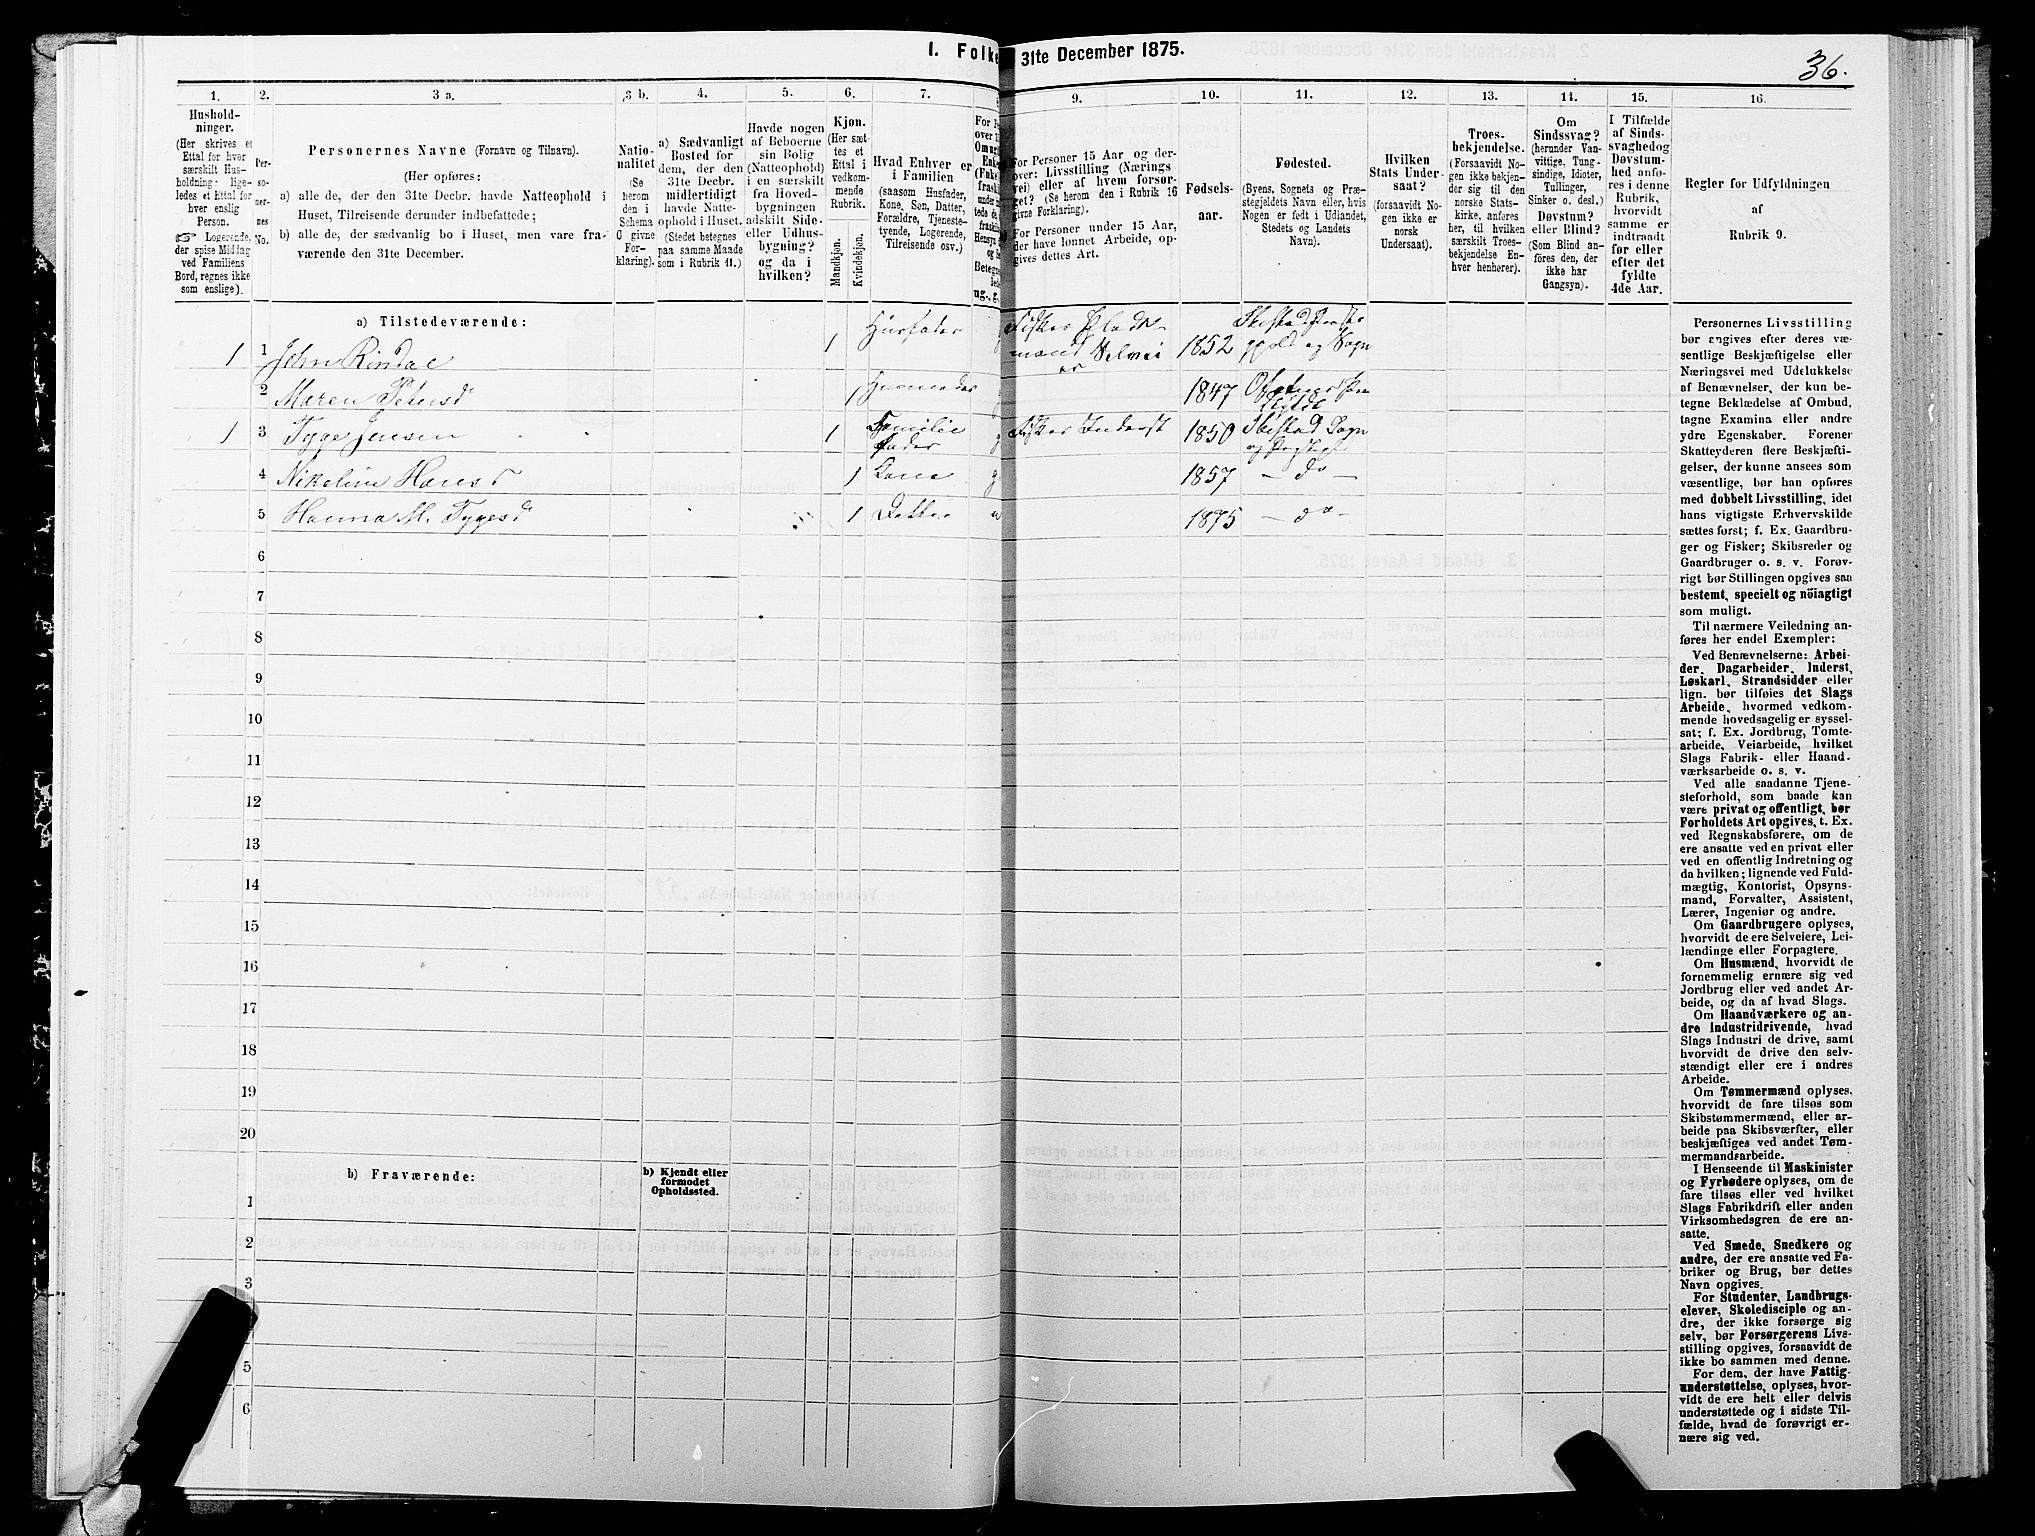 1. Folke 31te December 1875.
36.
1.
Husholdninger.
(Her skrives et
Ettal for hver
særskilt Husholdning; ligeledes
et Ettal for
hver enslig
Person.
☞ Logerende,
der spise Middag
ved Familiens
Bord, regnes ikke
som enslige).
2.
Personernes
No.
3 a.
Personernes Navne (Fornavn og Tilnavn).
(Her opføres:
a) alle de, der den 31te Decbr. havde Natteophold i
Huset, Tilreisende derunder indbefattede;
b) alle de, der sædvanlig bo i Huset, men vare fraværende
den 31te December.
3 b.
Nationalitet
(Se
herom
den i
Schema
C givne
Forklaring).
4.
a) Sædvanligt
Bosted for
dem, der den
31te Decbr.
midlertidigt
havde Natteophold
i Huset.
(Stedet betegnes
paa samme Maade
som i Rubrik 11.)
5.
Havde nogen
af Beboerne
sin Bolig
(Natteophold)
i en særskilt
fra Hovedbygningen
adskilt Sideeller
Udhusbygning?
og da i
hvilken?
6.
Kjøn.
(Her sættes
et
Ettal i
vedkommende
Rubrik.
Mandkjøn.
Kvindekjøn.
7.
Hvad Enhver er
i Familien
(saasom Husfader,
Kone, Søn, Datter,
Forældre, Tjenestetyende,
Logerende,
Tilreisende osv.)
9.
For Personer 15 Aar og derover:
Livsstilling (Næringsvei)
eller af hvem forsørget?
(Se herom den i Rubrik 16
givne Forklaring).
For Personer under 15 Aar,
der have lønnet Arbeide, opgives
dettes Art.
10.
Fødselsaar.
11.
Fødested.
(Byens, Sognets og Præstegjeldets
Navn eller, hvis
Nogen er født i Udlandet,
Stedets og Landets
Navn).
12.
Hvilken
Stats Undersaat?
(forsaavidt Nogen
ikke er
norsk
Undersaat).
13.
Troesbekjendelse.
(Forsaavidt Nogen
ikke bekjender
sig til den
norske Statskirke,
anføres
her, til hvilken
særskilt Troesbekjendelse
Enhver
henhører).
14.
Om
Sindssvag?
(herunder Vanvittige,
Tungsindige,
Idioter,
Tullinger,
Sinker o. desl.)
Døvstum?
eller Blind?
(Som Blind anføres
den, der
ikke har
Gangsyn).
15.
I Tilfælde
af Sindssvaghed
og
Døvstumhed
anføres
i denne
Rubrik,
hvorvidt
samme er
indtraadt
før eller
efter det
fyldte
4de Aar.
16.
Regler for Udfyldningen
af
Rubrik 9.
a) Tilstedeværende:
1 1 John Rindal 1 Husfader Fisker Pladsmand Selveier 1852 Ibestad Præstegjeld og Sogn
2 Maren Petersd 1 Husmoder 1847 Ofoten
1 3 Tyge Jensen 1 Familiefader g Fisker Inderst 1850 Ibestad Sogn og Præstegj
4 Nikoline Hansd 1 Kona g 1857 – do –
5 Hanna M. Tygesd 1 Datter u 1875 – do –
6
7
8
9
10
11
12
13
14
15
16
17
18
19
20
b) Fraværende:
b) Kjendt eller
formodet
Opholdssted.
1
2
3
5
6
Personernes Livsstilling
bør angives efter deres væsentlige
Beskjæftigelse eller
Næringsvei med Udelukkelse
af Benævnelser, der kun betegne
Beklædelse af Ombud,
tagne Examina eller andre
ydre Egenskaber. Forener
Skatteyderen flere Beskjæftigelser,
der kunne ansees som
væsentlige, bør han opføres
med dobbelt Livsstilling, idet
hans vigtigste Erhvervskilde
sættes først; f. Ex. Gaardbruger
og Fisker; Skibsreder og
Gaardbruger o. s. v. Forøvrigt
bør Stillingen opgives saa
bestemt, specielt og nöiagtigt
som muligt.
Til nærmere Veiledning anføres
her endel Exempler:
Ved Benævnelserne: Arbeider,
Dagarbeider, Inderst,
Løskarl, Strandsidder eller
lign. bør tilføies det Slags
Arbeide, hvormed vedkommende
hovedsagelig er sysselsat;
f. Ex. Jordbrug, Tomtearbeide,
Veiarbeide, hvilket
Slags Fabrik- eller Haandværksarbeide
o. s. v.
Ved alle saadanne Tjenesteforhold,
som baade kan
være privat og offentligt, bør
Forholdets Art opgives, t. Ex.
ved Regnskabsførere, om de
ere ansatte ved en privat eller
ved en offentlig Indretning og
da hvilken; lignende ved Fuldmægtig,
Kontorist, Opsynsmand,
Forvalter, Assistent,
Lærer, Ingeniør og andre.
Om Gaardbrugere oplyses,
hvorvidt de ere Selveiere, Leilændinge
eller Forpagtere.
Om Husmænd, hvorvidt de
fornemmelig ernære sig ved
Jordbrug eller ved andet Arbeide,
og da af hvad Slags.
Om Haandværkere og andre
Industridrivende, hvad
Slags Industri de drive, samt
hvorvidt de drive den selvstændigt
eller ere i andres
Arbeide.
Om Tømmermænd oplyses,
hvorvidt de fare tilsøs som
Skibstømmermænd, eller arbeide
paa Skibsværfter, eller
beskjæftiges ved andet Tømmermandsarbeide.
I Henseende til Maskinister
og Fyrbødere oplyses, om de
fare tilsøs eller ved hvilket
Slags Fabrikdrift eller anden
Virksomhedsgren de ere ansatte.
Ved Smede, Snedkere og
andre, der ere ansatte ved Fabriker
og Brug, bør dettes
Navn opgives.
For Studenter, Landbrugselever,
Skoledisciple og andre,
der ikke forsørge sig
selv, bør Forsørgerens Livsstilling
opgives, forsaavidt de
ikke bo sammen med denne.
For dem, der have Fattigunderstøttelse,
oplyses, hvorvidt
de ere helt eller delvis
understøttede og i sidste Tilfælde,
hvad de forøvrigt ernære
sig ved.